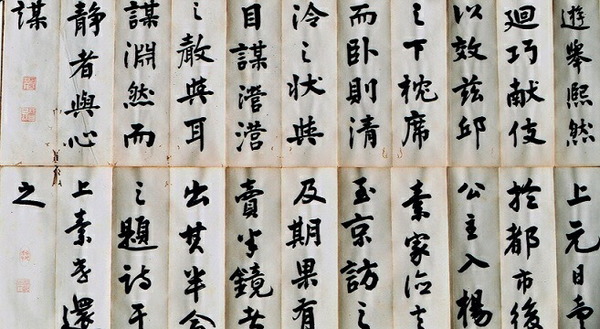 遊舉熙然
廻巧献伎
以效茲邱
之下枕席
而卧則清
泠之状與
目謀瀯瀯
之聲與耳
謀淵然而
静者與心
謀
上元日賣
於都市後
公主入楊
素家德言
至京訪之
及期果有
賣半鏡者
出其半合
之題詩于
上素還
之